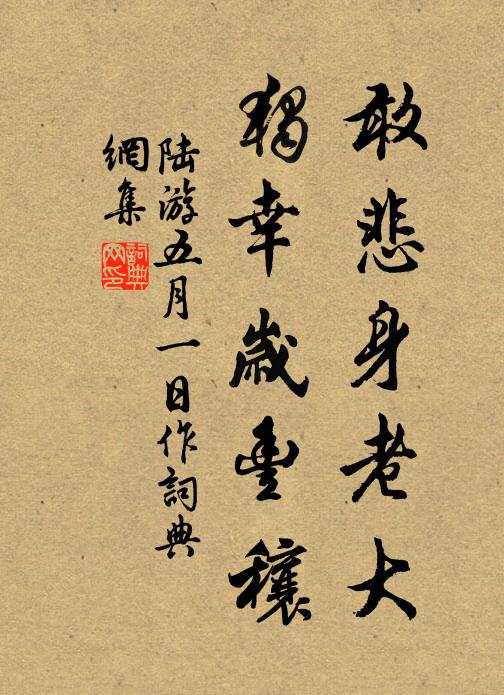 敢悲身老大
獨幸歲豐穰
陸游五月一日作詞典
網集
詞典
网印